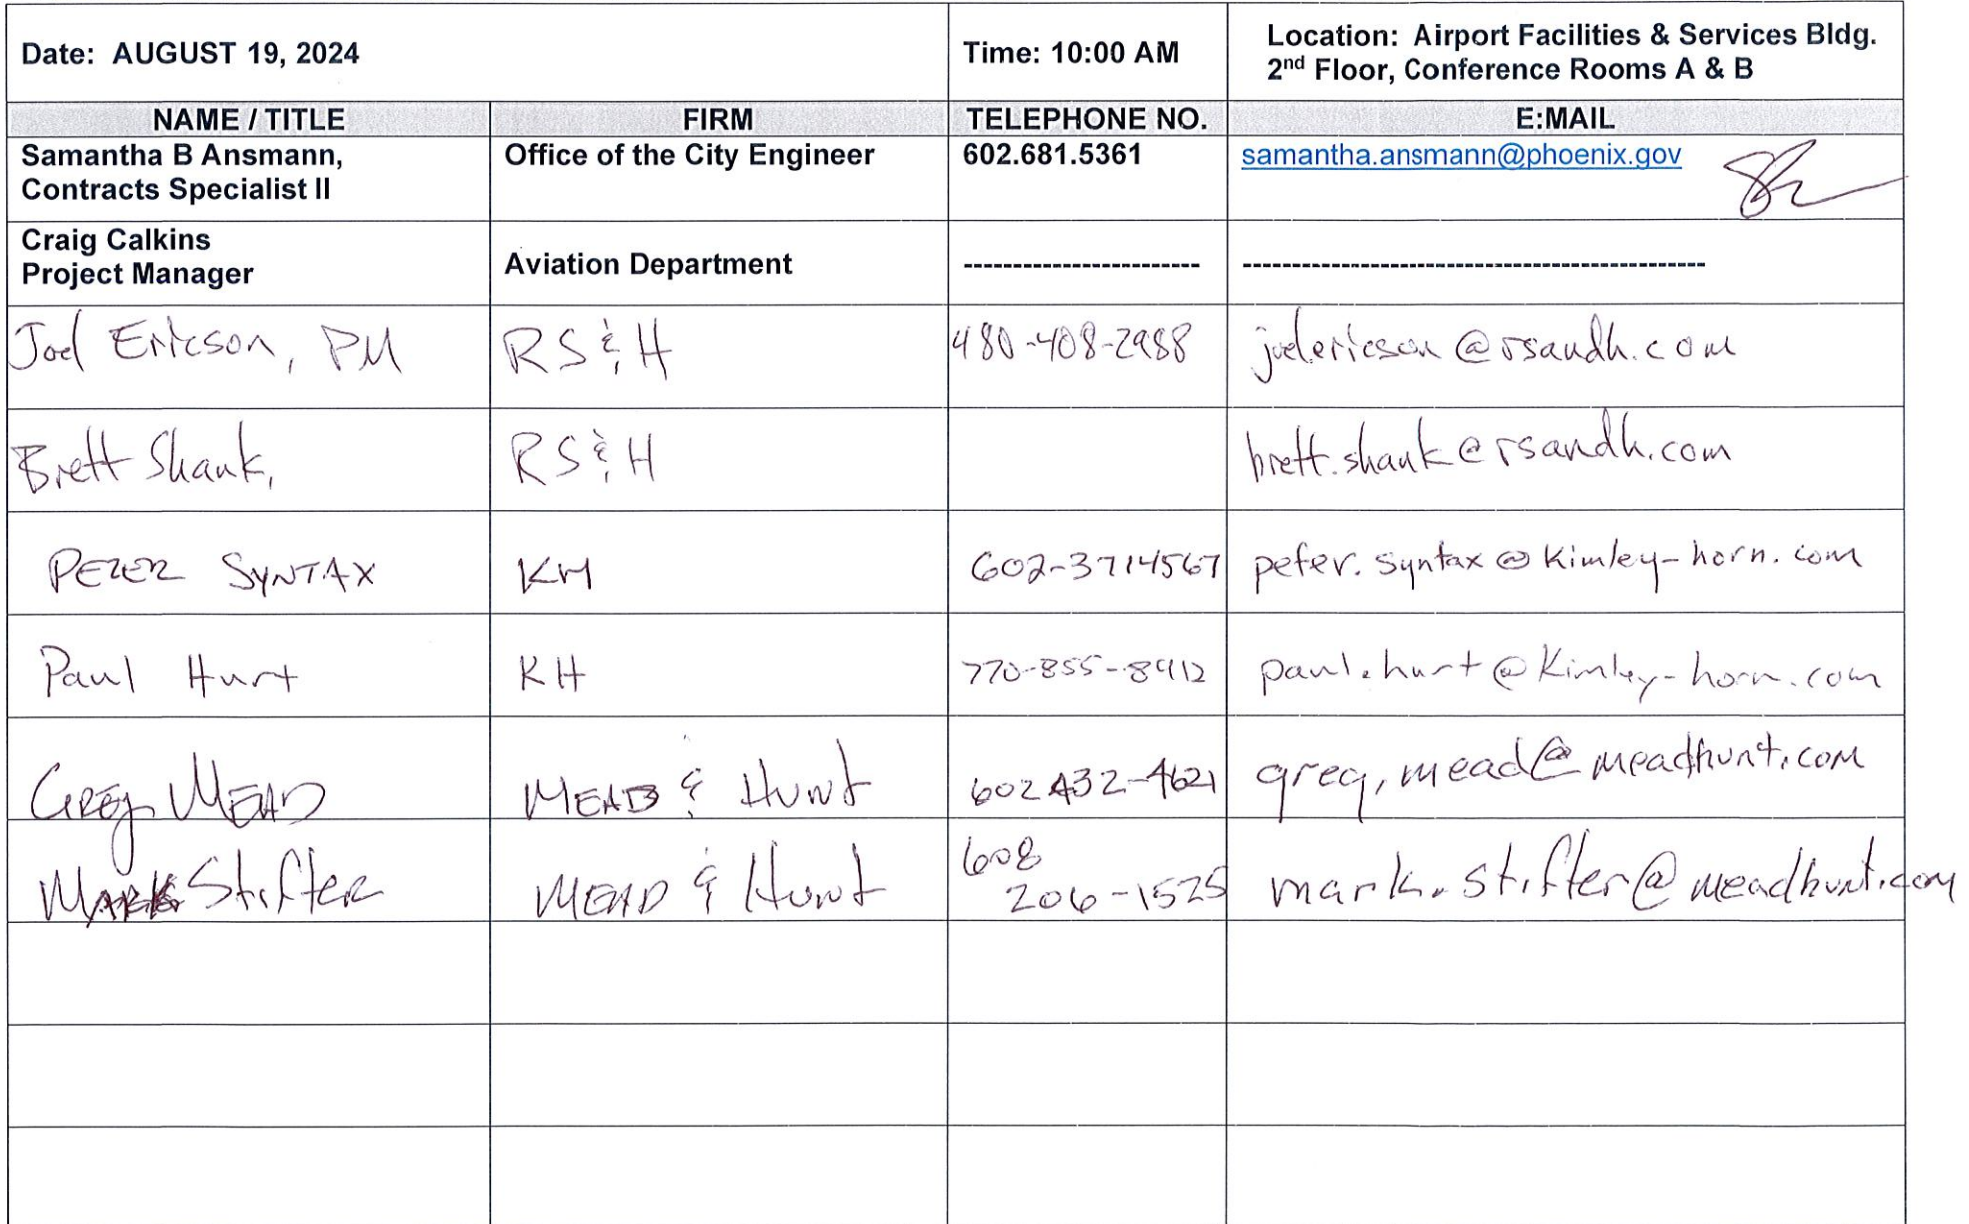 Date: AUGUST 19, 2024 Time: 10:00 AM Location: Airport Facilities & Services Bldg.
2nd Floor, Conference Rooms A & B
NAME / TITLE FIRM TELEPHONE NO. E:MAIL
Samantha B Ansmann, Office of the City Engineer 602.681.5361 samantha.ansmann@phoenix.gov
Contracts Specialist II
Craig Calkins
Project Manager Aviation Department ------------------------ -----------------------------------------------
Joel Ericson, PM RS & H 480-408-2988 joel.ericson@rsandh.com
Brett Shank, RS & H brett.shank@rsandh.com
PETER SYNTAX KH 602-3714567 peter.syntax@kimley-horn.com
Paul Hurt KH 770-855-8912 paul.hurt@Kimley-horn.com
GREG MEAD MEAD & Hunt 602 432-4621 greg.mead@meadhunt.com
608
MARK Stifter MEAD & Hunt 206-1525 mark.stifter@meadhunt.com